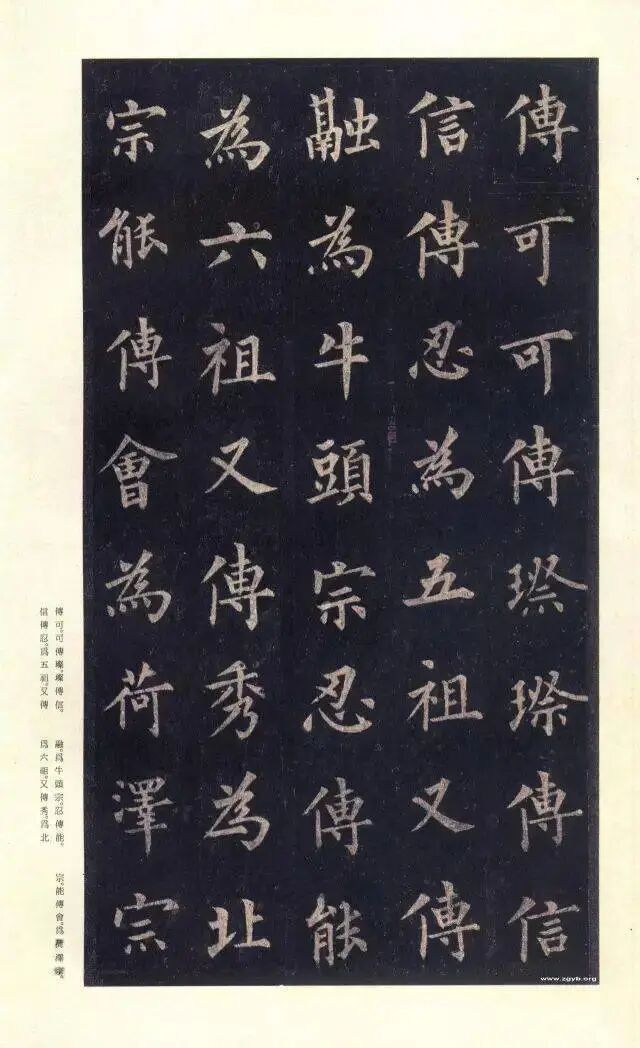 傳可可傳璨璨傳信
信傳忍為五祖又傳
融為牛頭宗忍傳能
為六祖又傳秀為北
宗能傳會為荷澤宗
傳可。可傳璨。璨傳信。
信傳忍。為五祖。又傳
融。為牛頭宗。忍傳能。
為六祖。又傳秀。為北
宗。能傳會。為荷澤宗。
www.zgyb.org